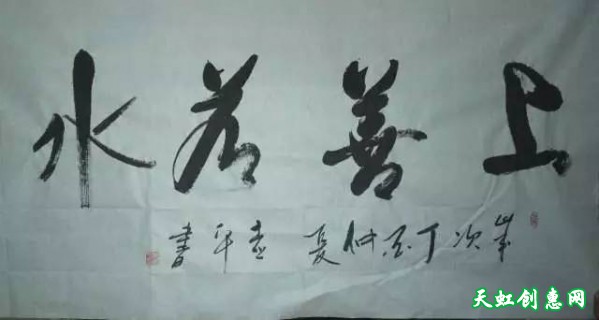 上善若水
岁次丁酉仲夏 平書
天虹创惠网